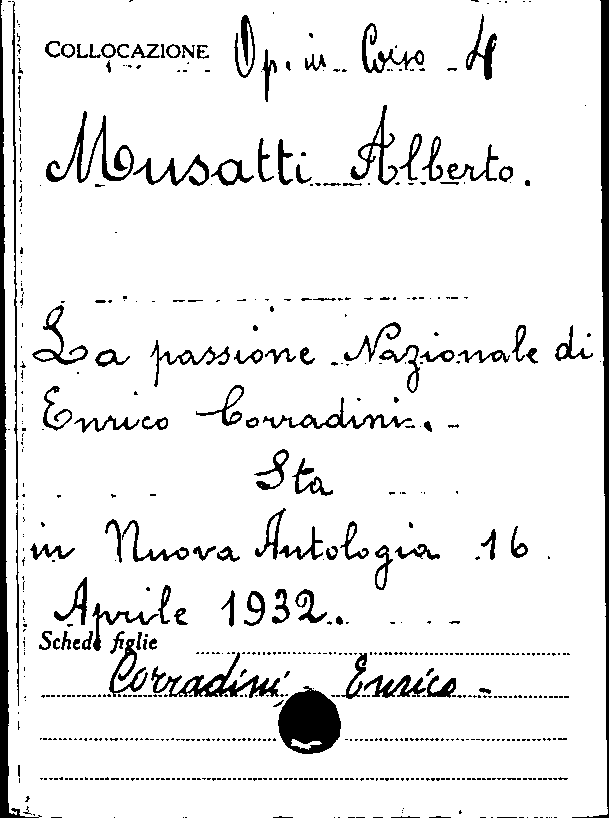 COLLOCAZIONE Op. in Corso 4
Musatti Alberto.
La passione Nazionale di
Enrico Corradini. -
Sta
in Nuova Antologia 16
Aprile 1932.
Schede figlie
Corradini Enrico -